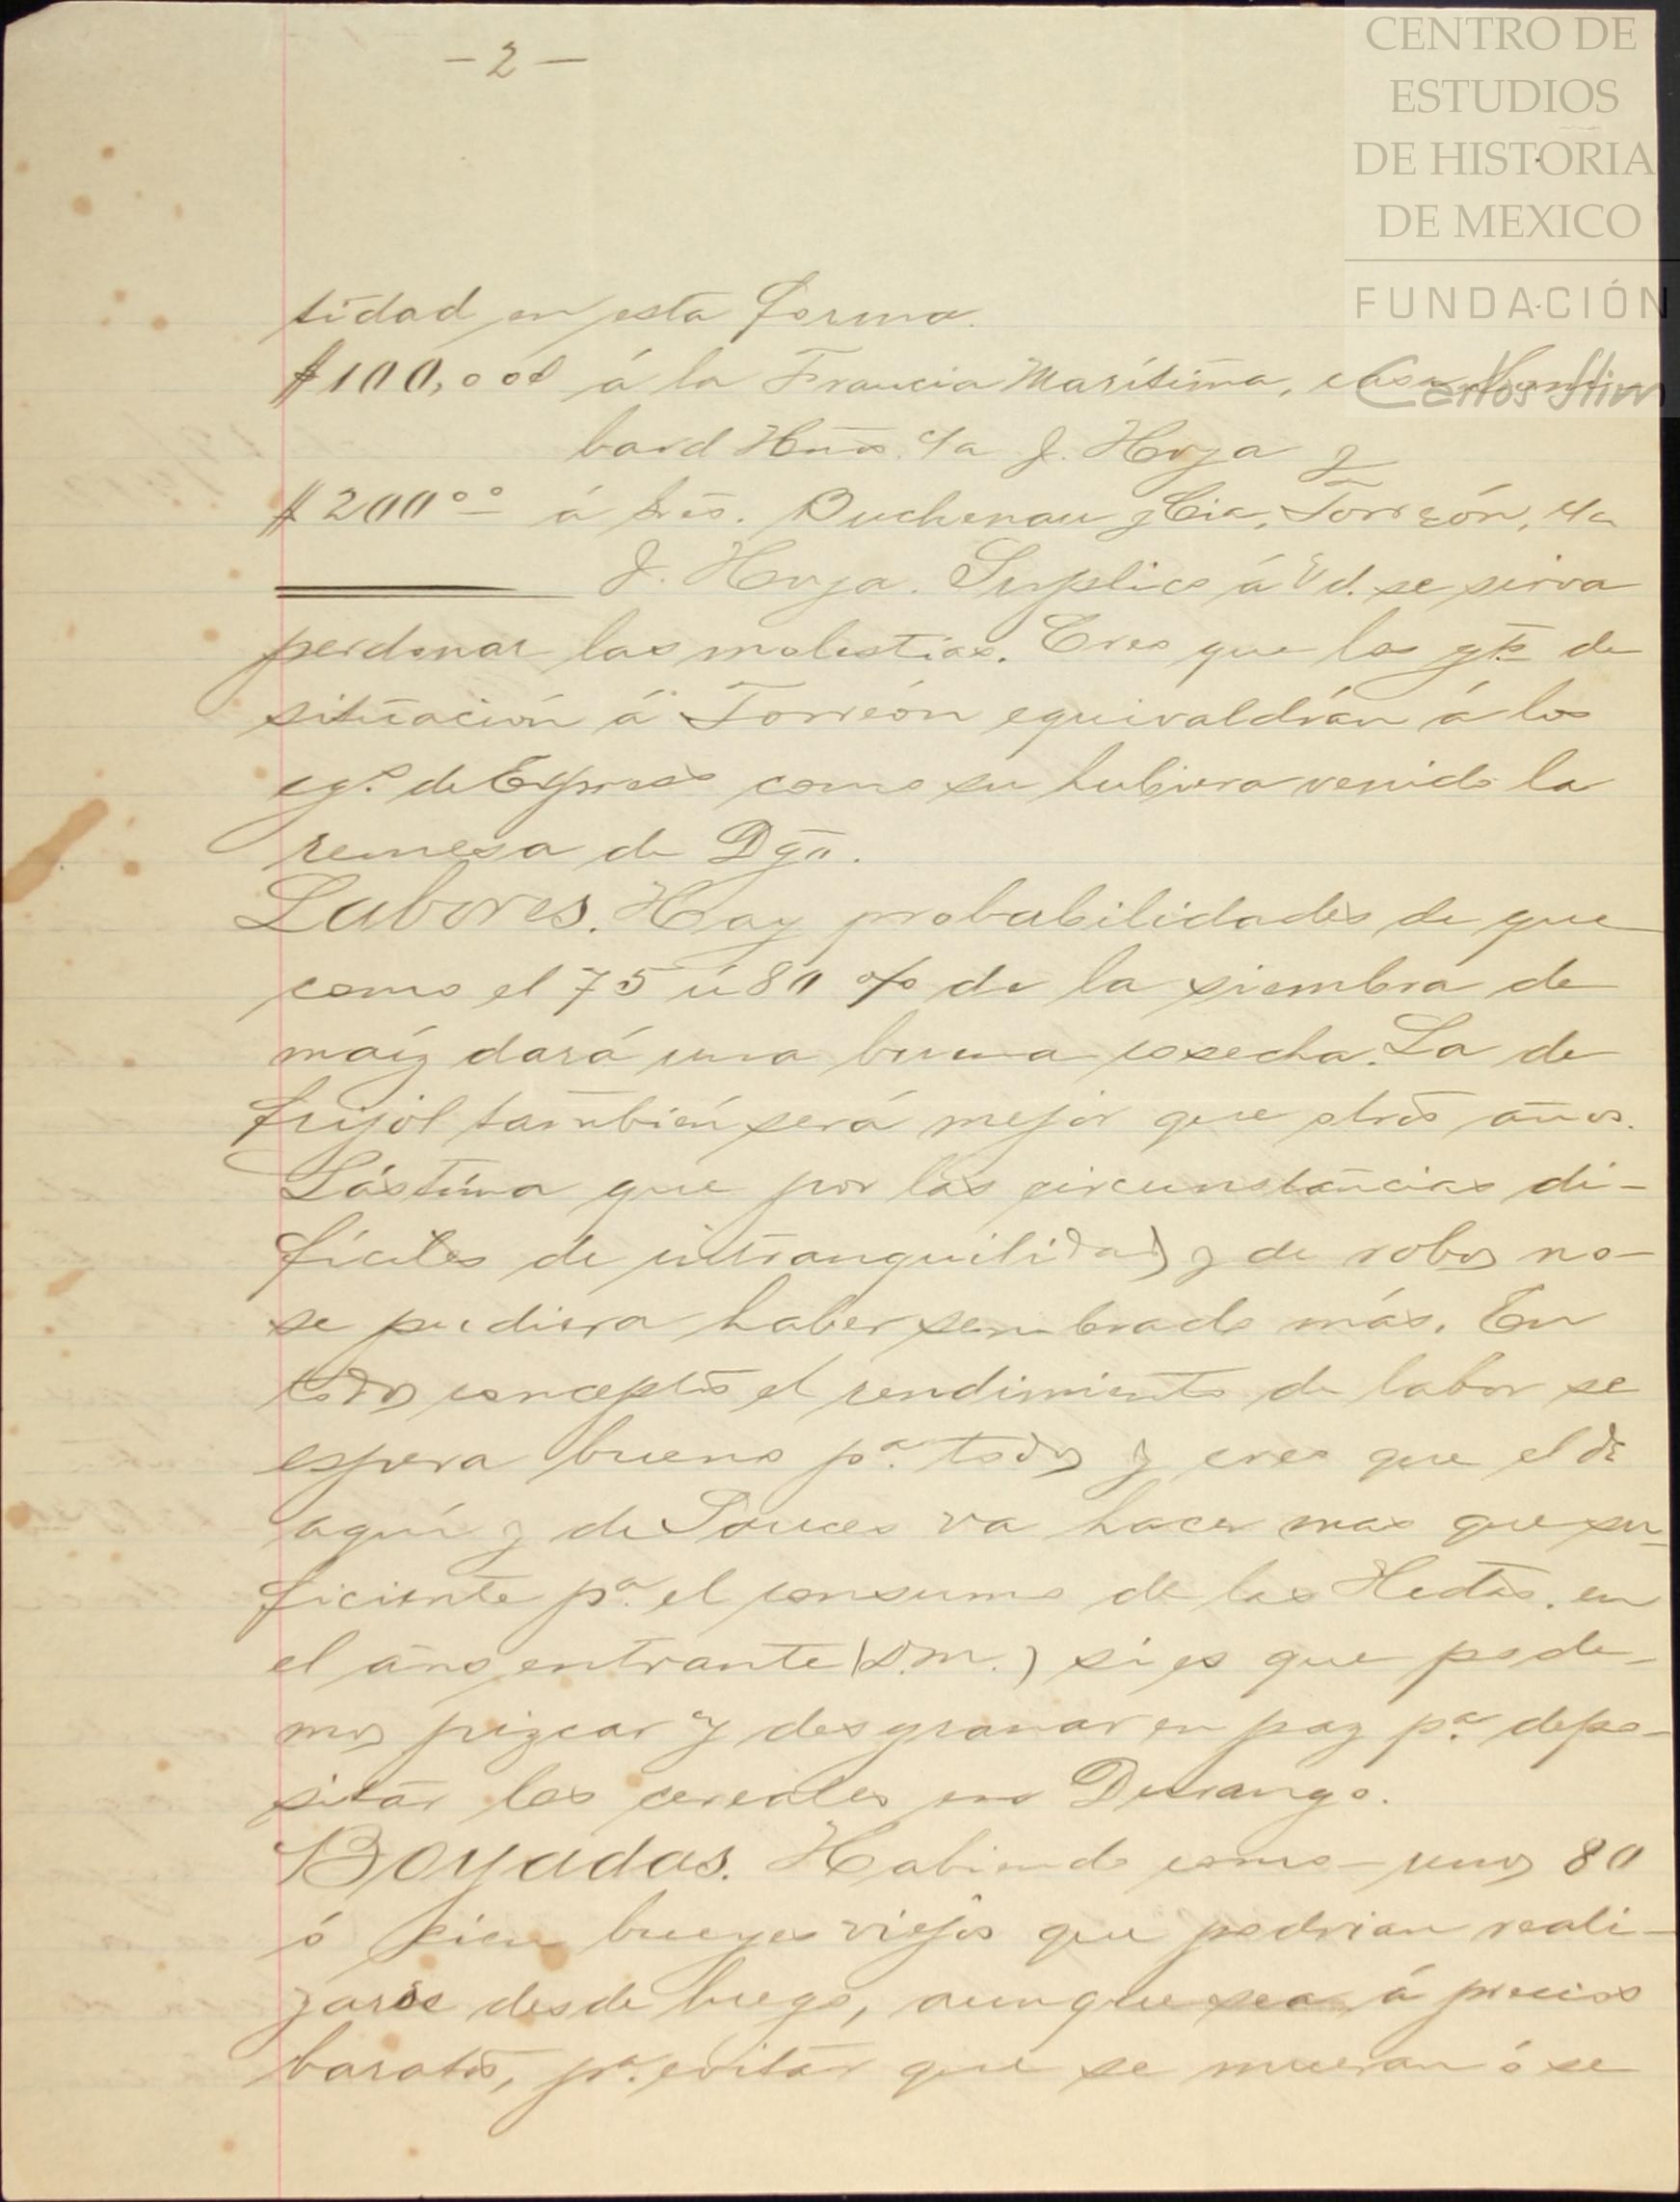 - 2 -
CENTRO DE
ESTUDIOS
DE HISTORIA
DE MEXICO
FUNDACIÓN
Carlos Slim
tidad en esta forma.
$100,00 á la Francia Marítima, casa
bard Hnos. c/a J. Hoya y
$200 00 á Sres. Buchenau y Cia, Torreón, c/a
J. Hoya. Suplico á Vd. se sirva
perdonar las molestias. Creo que los gts de
situación á Torreón equivaldrán á los
de Express como su hubiera venido la
remesa de Dgo.
Labores. Hay probabilidades de que
como el 75 ú 80 % de la siembra de
maíz dará una buena cosecha. La de
frijol también será mejor que otros años.
Lástima que por las circunstancias di-
fíciles de intranquilidad y de robos no-
se pudiera haber sembrado más. En
todos conceptos el rendimiento de labor se
espera bueno pa. todos y creo que el de
aquí y de Sauces va hacer mas que su-
ficiente pa. el consumo de las Hcdas. en
el año entrante (D.m.) si es que pode-
mos pizcar y desgranar en paz pa. depo-
sitar los cereales en Durango.
Boyadas. Habiendo como - unos 80
ó cien bueyes viejos que podrian reali-
zarse desde luego, aunque sea á precios
baratos, pa. evitar que se mueran ó se